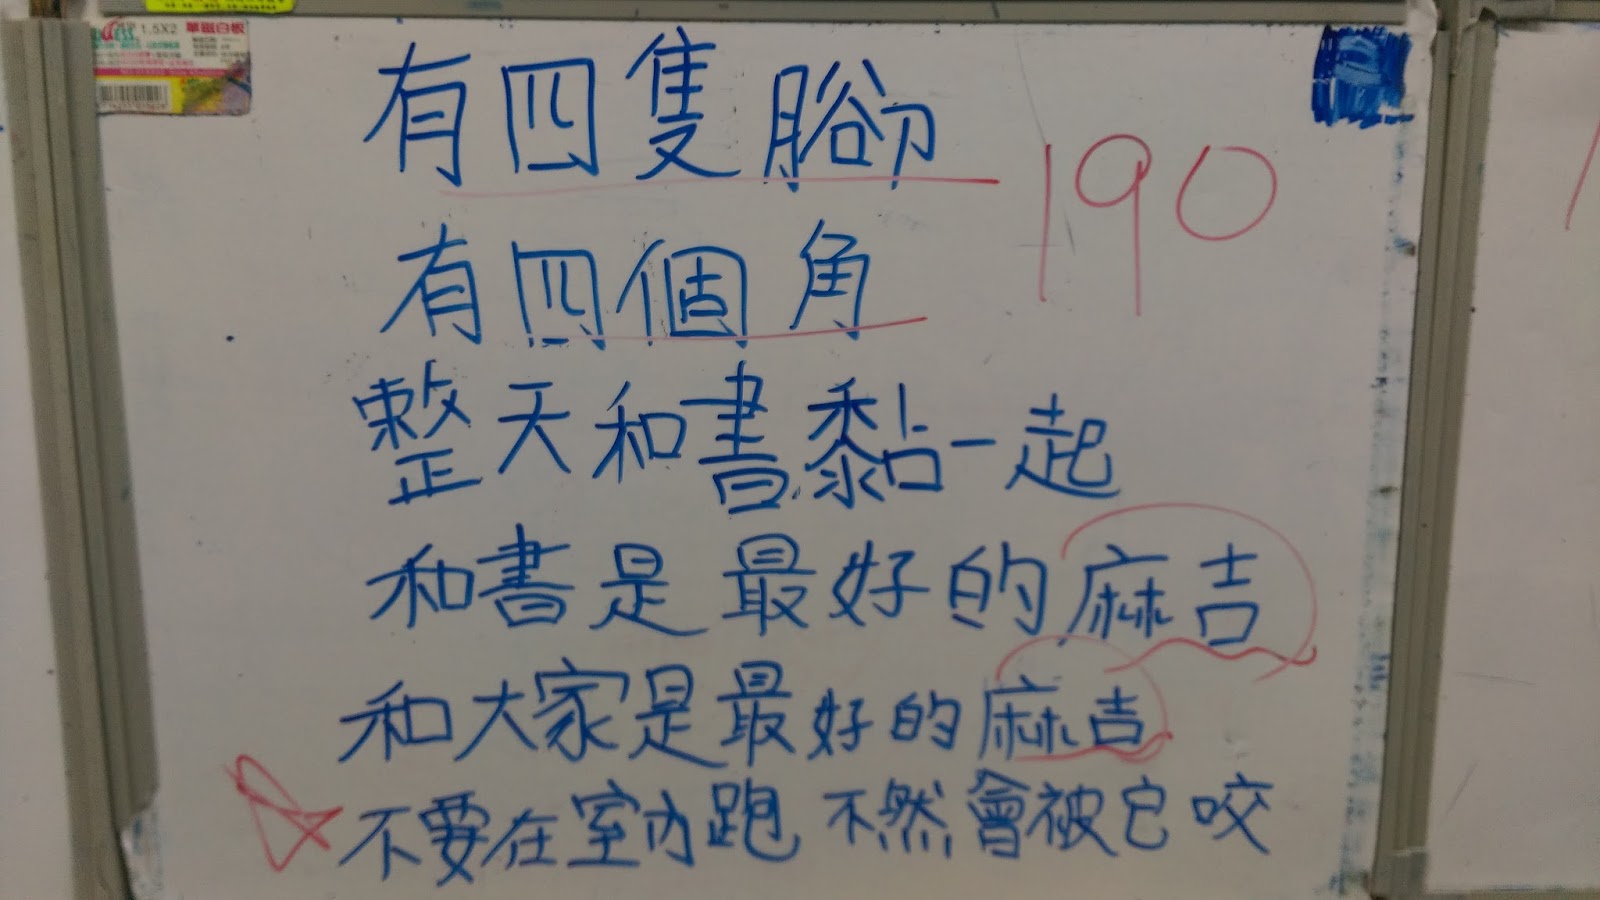 1.5X2 單磁白板
有四隻腳
190
有四個角
整天和書黏一起
和書是最好的麻吉
和大家是最好的麻吉
不要在室內跑 不然會被它咬